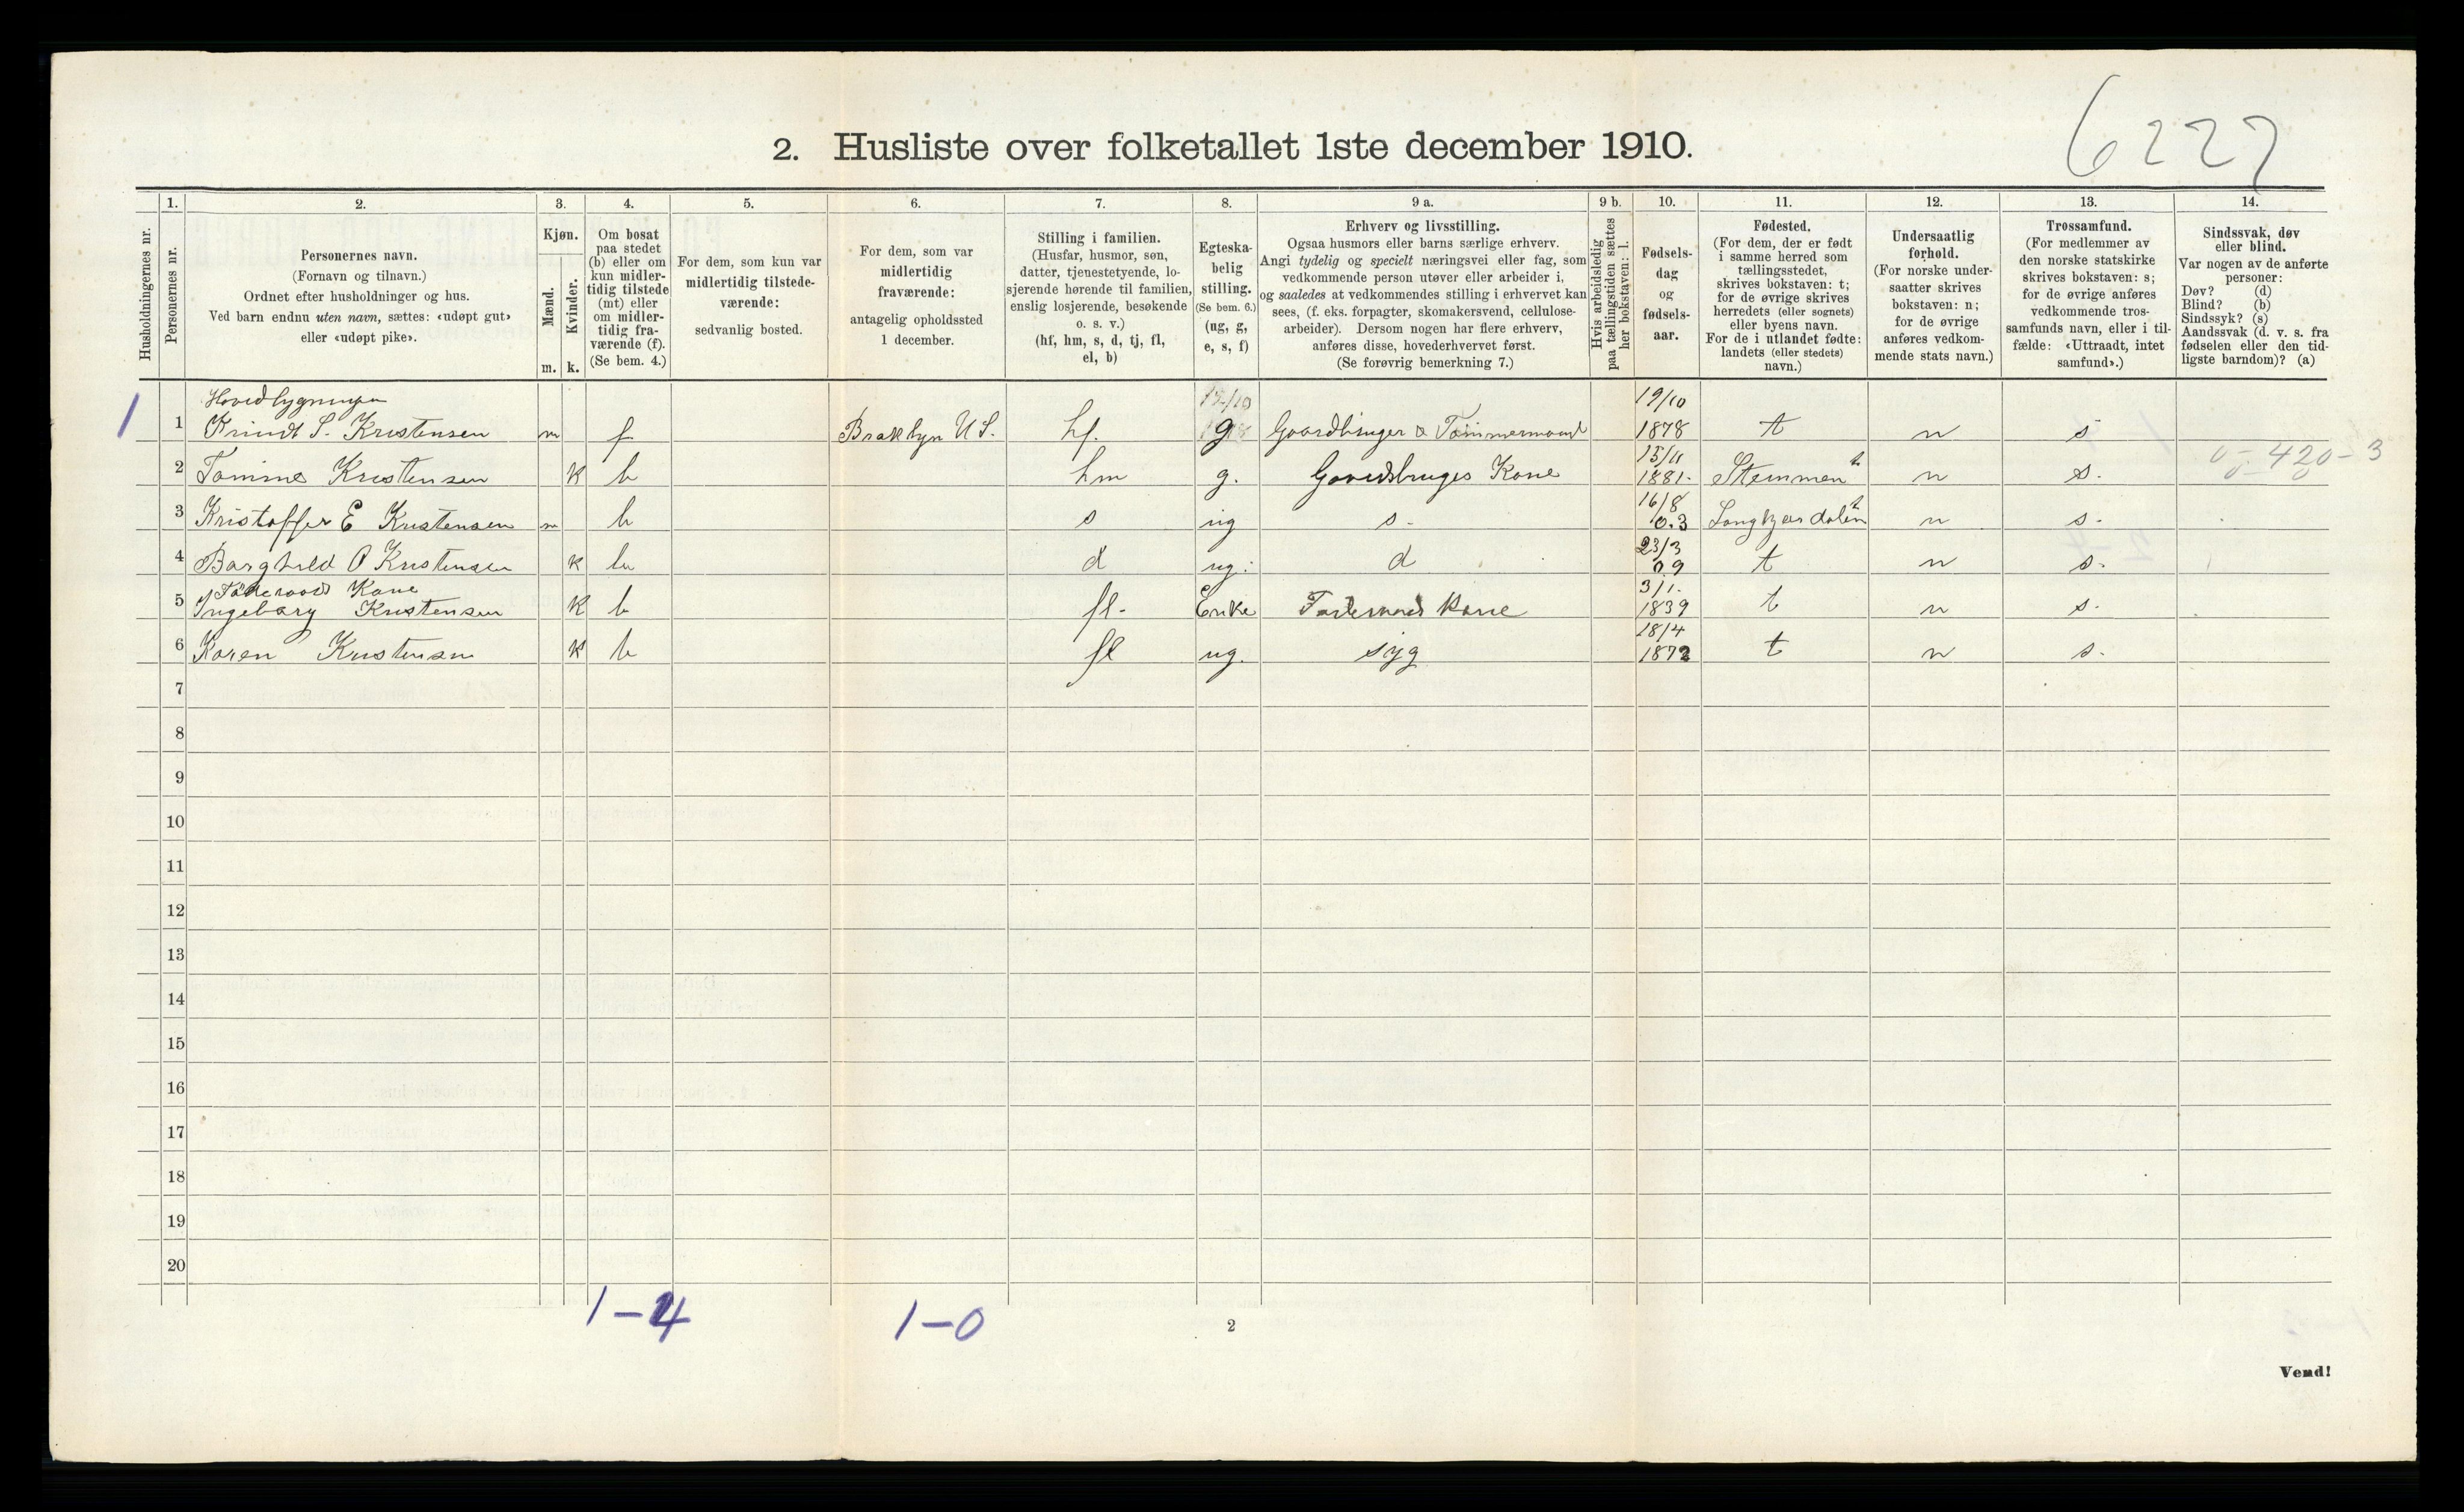 6227
2. Husliste over folketallet 1ste december 1910.
Husholdningernes nr.
1.
Personernes nr.
2.
Personernes navn.
(Fornavn og tilnavn.)
Ordnet efter husholdninger og hus.
Ved barn endnu uten navn, sættes: «udøpt gut»
eller «udøpt pike».
3.
Kjøn.
Mænd.
Kvinder.
m. k.
4.
Om bosat
paa stedet
(b) eller om
kun midler-
tidig tilstede
(mt) eller
om midler-
tidig fra-
værende (f).
(Se bem. 4.)
5.
For dem, som kun var
midlertidig tilstede-
værende:
sedvanlig bosted.
6.
For dem, som var
midlertidig
fraværende:
antagelig opholdssted
1 december.
7.
Stilling i familien.
(Husfar, husmor, søn,
datter, tjenestetyende, lo-
sjerende hørende til familien,
enslig losjerende, besøkende
o. s. v.)
(hf, hm, s, d, tj, fl,
el, b)
8.
Egteska-
belig
stilling.
(Se bem. 6.)
(ug, g,
e, s, f)
9 a.
Erhverv og livsstilling.
Ogsaa husmors eller barns særlige erhverv.
Angi tydelig og specielt næringsvei eller fag, som
vedkommende person utøver eller arbeider i,
og saaledes at vedkommendes stilling i erhvervet kan
sees, (f. eks. forpagter, skomakersvend, cellulose-
arbeider). Dersom nogen har flere erhverv,
anføres disse, hovederhvervet først.
(Se forøvrig bemerkning 7.)
9 b.
Hvis arbeidsledig
paa tællingstiden sættes
her bokstaven: l.
10.
Fødsels-
dag
og
fødsels-
aar.
11.
Fødested.
(For dem, der er født
i samme herred som
tællingsstedet,
skrives bokstaven: t;
for de øvrige skrives
herredets (eller sognets)
eller byens navn.
For de i utlandet fødte:
landets (eller stedets)
navn.)
12.
Undersaatlig
forhold.
(For norske under-
saatter skrives
bokstaven: n;
for de øvrige
anføres vedkom-
mende stats navn.)
13.
Trossamfund.
(For medlemmer av
den norske statskirke
skrives bokstaven: s;
for de øvrige anføres
vedkommende tros-
samfunds navn, eller i til-
fælde: «Uttraadt, intet
samfund».)
14.
Sindssvak, døv
eller blind.
Var nogen av de anførte
personer:
Døv? (d)
Blind? (b)
Sindssyk? (s)
Aandssvak (d. v. s. fra
fødselen eller den tid-
ligste barndom)? (a)
Hovedbygningen 19/10
1 1 S. Kristensen m f Braklyn U S. hf. g Gaardbruger & Tømmermand 1878 t n s
15/11
2 Tomine Kristensen k b hm g. Gaardsbruges Kone 1881. Stemmen t n s. 0-420-3
16/8
3 Kristoffer E Kristensen m b s ug s. 0.3 Langkjærdalen t n s.
23/3
4 Borghild O Kristensen k b d ug. d 09 t n s.
Föderaads Kone 3/1.
5 Ingeborg Kristensen k b fl. Enke Föderaads Kone 1839 t n s.
18/4
6 Karen Kristensen k b fl ug. syg 1872 t n s.
7
8
9
10
11
12
13
14
15
16
17
18
19
20
1-4 1-0
2
Vend!